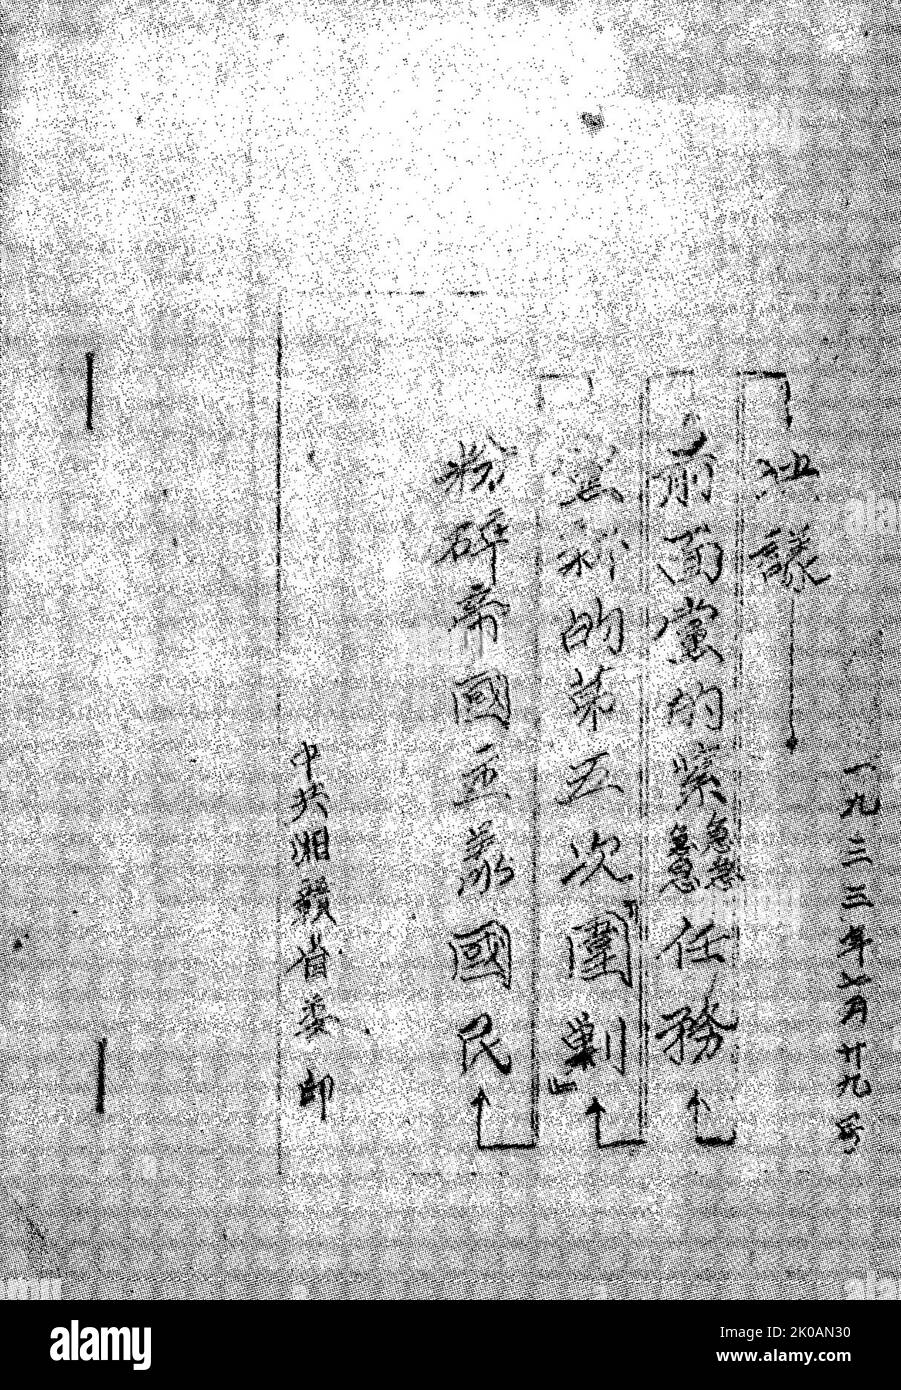 粉碎帝國主義國民
黨新的第五次「圍剿」
前面黨的緊急急急急任務
決議
一九三三年七月廿九号
中共湘贛省委印
alamy
Image ID: 2K0AN30
www.alamy.com